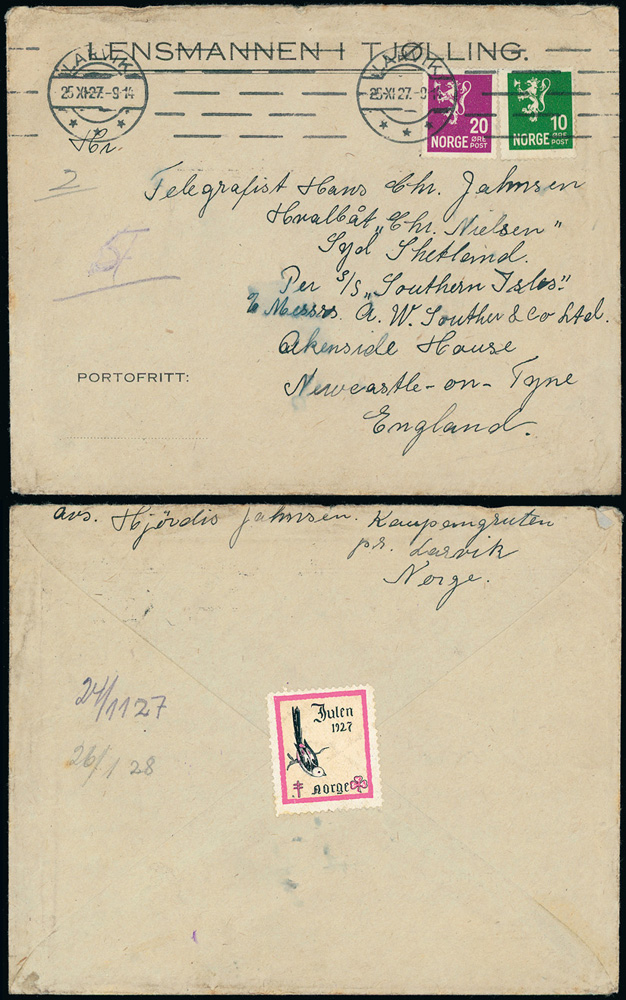 LENSMANNEN I TJØLLING.
LARVIK
25 XI 27.-9-14
LARVIK
25 XI 27.-9-14
20
NORGE ØRE POST
10
NORGE ØRE POST
Hr.
2
Telegrafist Hans Chr. Jahnsen
Hvalbåt „Chr. Nielsen"
Syd Shetland.
Per S/S „Southern Isles".
c/o Messrs. A. W. Souther & Co Ltd.
Akenside House
PORTOFRITT:
Newcastle-on-Tyne
England.
avs. Hjördis Jahnsen. Kaupangruten
pr. Larvik
Norge.
24/11 27
26/1 28
Julen
1927
Norge